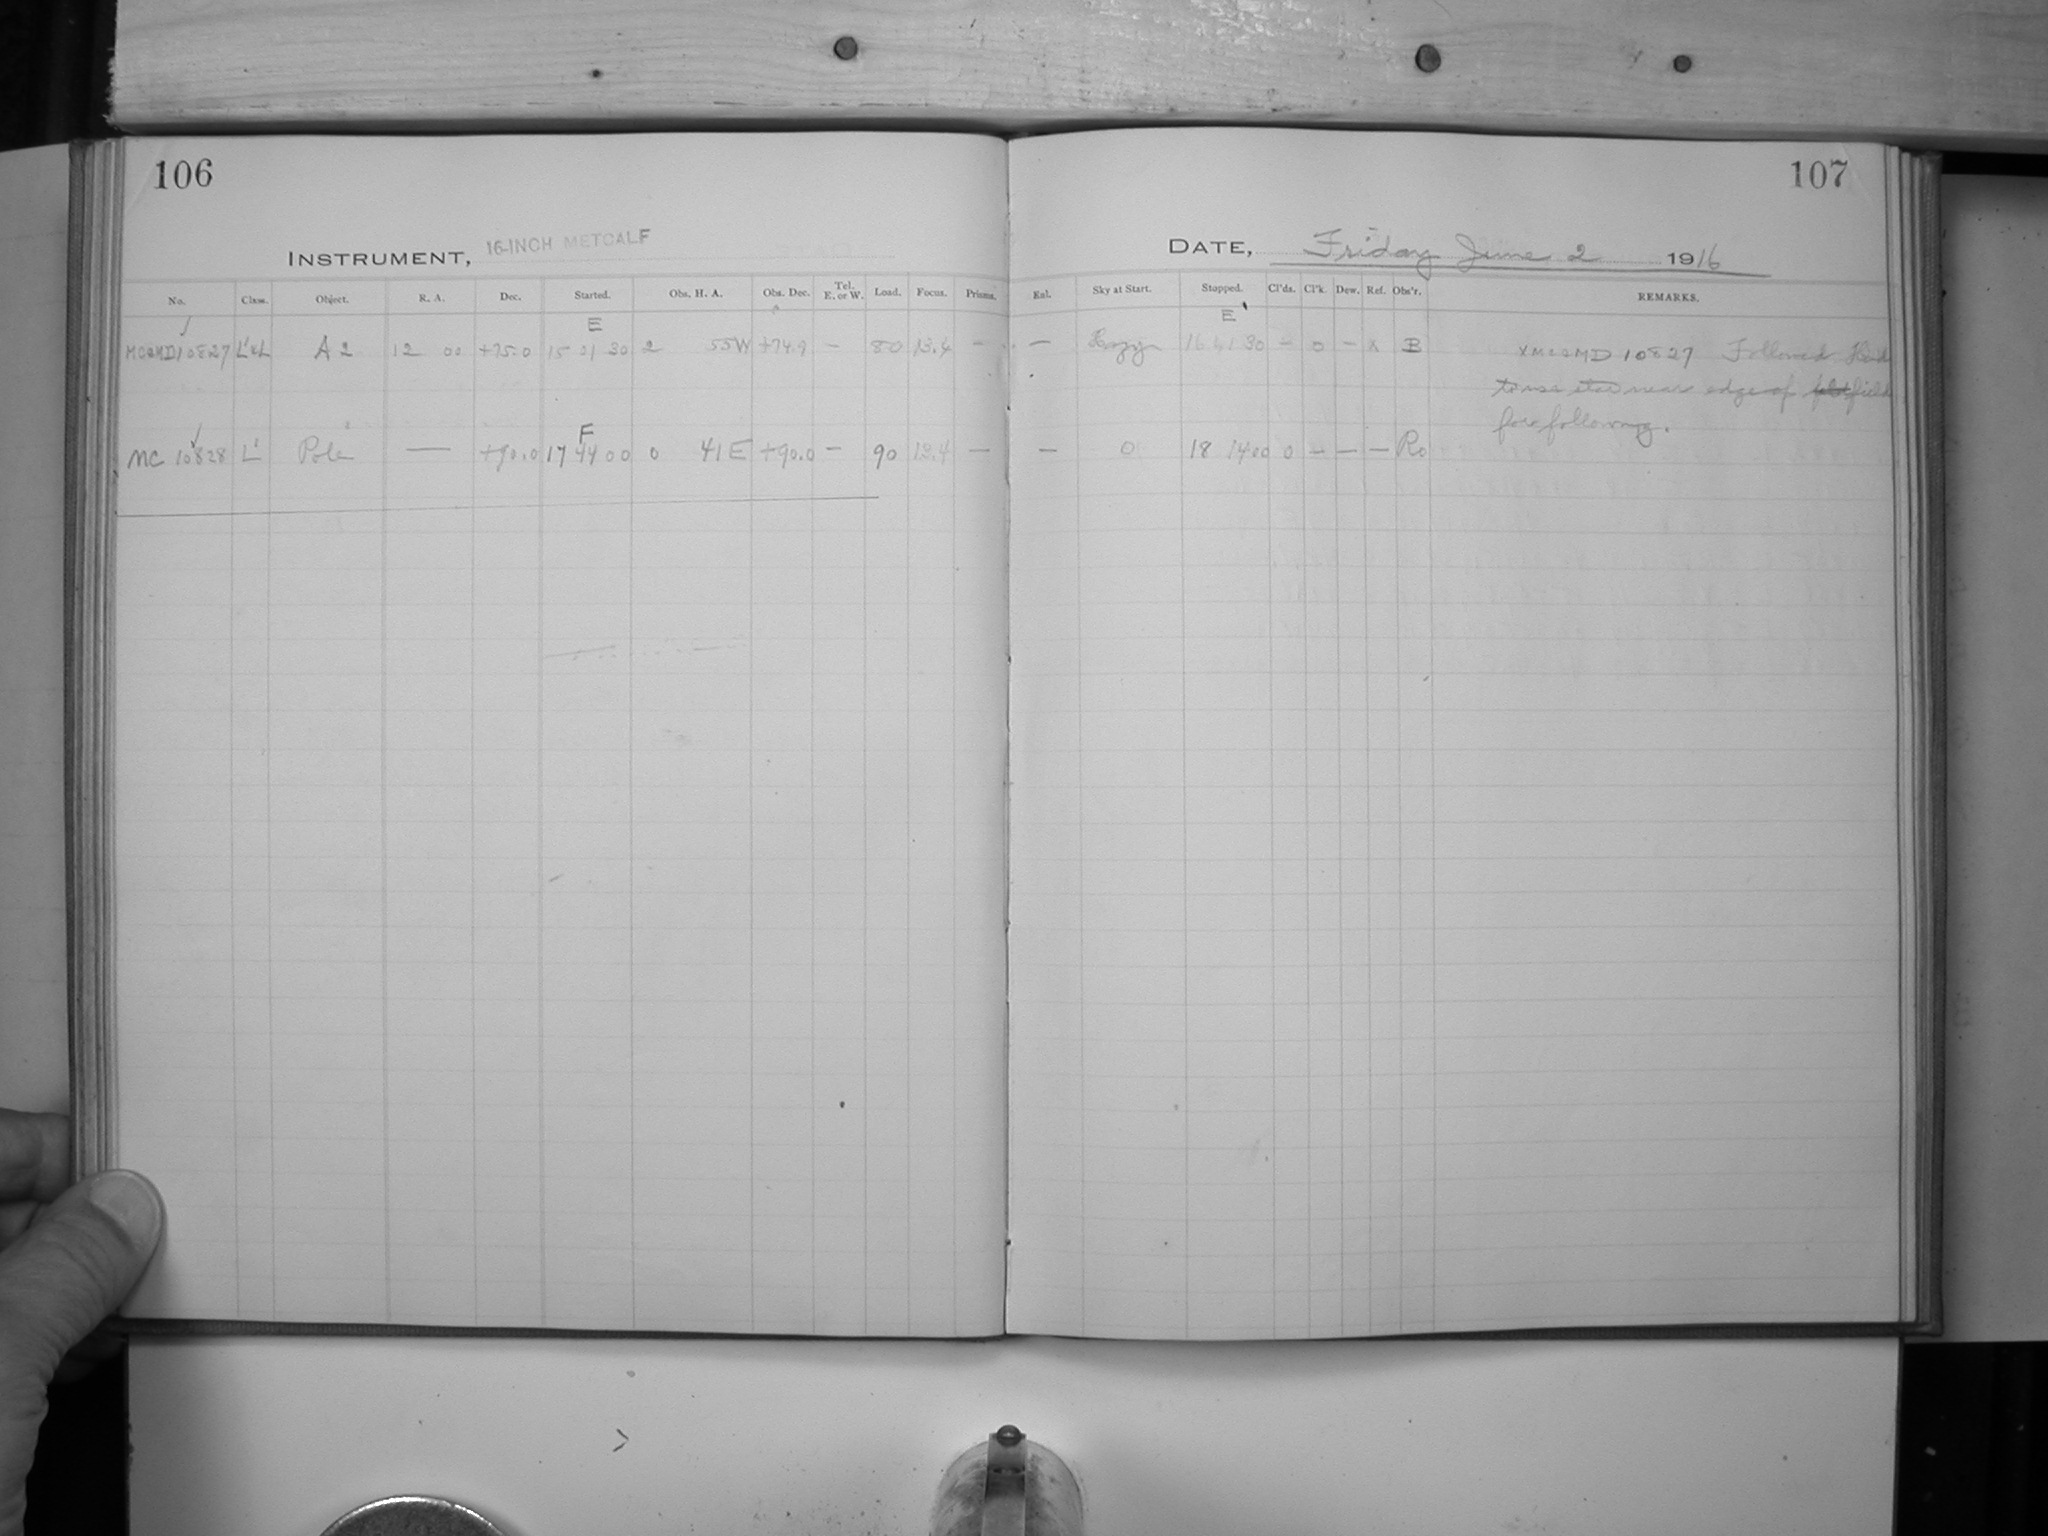 106
107
INSTRUMENT, 16-INCH METCALF
DATE, Friday June 2 1916
No. Class. Object. R. A. Dec. Started. Obs. H. A. Obs. Dec. Tel. E. or W. Load. Focus. Prisms. Eal. Sky at Start. Stopped. Cl'ds. Cl'k. Dew. Ref. Obs'r. REMARKS.
E E
MC&MD10827 L'&L A2 12 00 +75.0 15 01 30 2 55W +74.9 — 80 13.4 — — Hazy 16 41 30 — 0 — x B xMC&MD 10827 Followed. Had
to use star near edge of field
for following.
F
MC 10828 L' Pole — +90.0 17 44 00 0 41 E +90.0 — 90 13.4 — — 0 18 14 00 0 — — — Ro